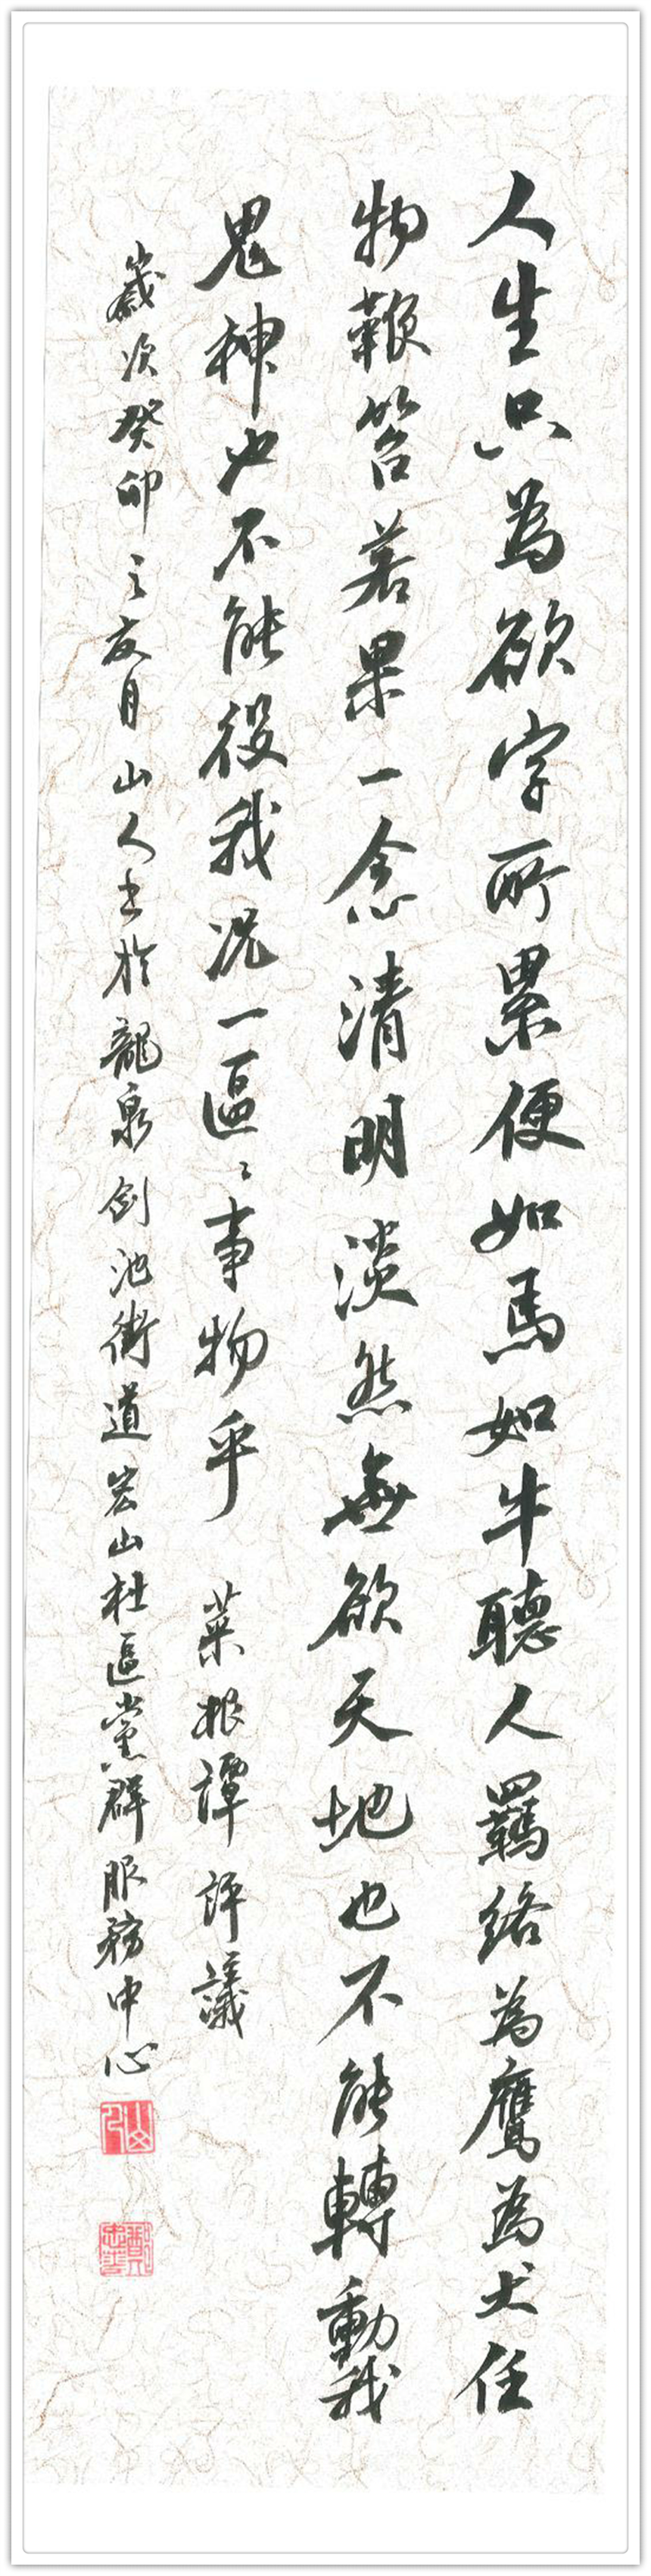 人生只為欲字所累便如馬如牛聽人羈絡為鷹為犬任
物鞭笞若果一念清明淡然無欲天地也不能轉動我
鬼神也不能役我況一區區事物乎 菜根譚評議
歲次癸卯之友月山人书於龍泉劍池街道宏山社區黨群服務中心